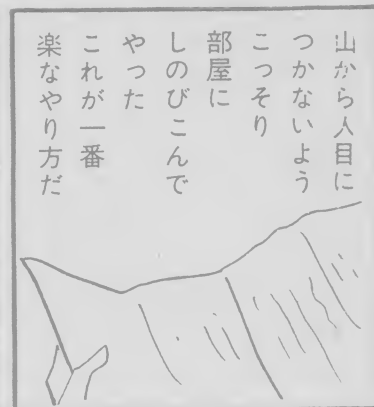 山から人目に
つかないよう
こっそり
部屋に
しのびこんで
やった
これが一番
楽なやり方だ